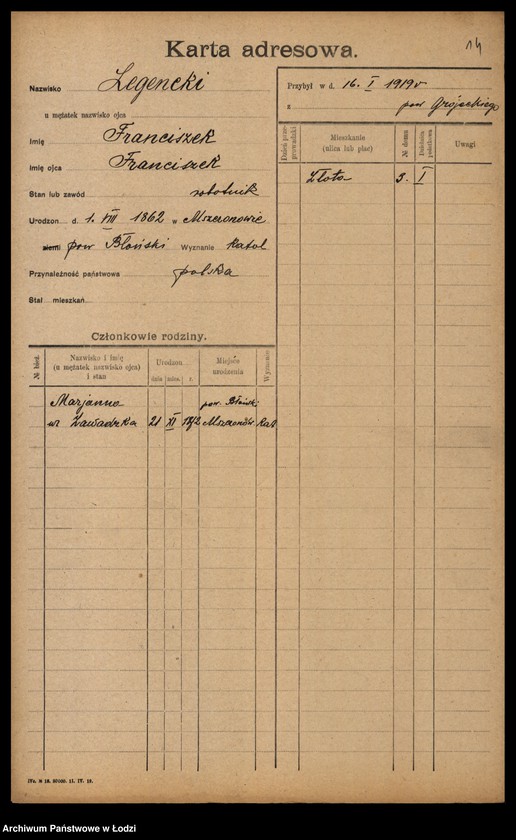 14
Karta adresowa.
Nazwisko Zegencki
u mężatek nazwisko ojca
Imię Franciszek
Imię ojca Franciszek
Stan lub zawód robotnik
Urodzon d. 1. VIII 1862 w Mszczonowie
ziemi pow Błoński Wyznanie Katol
Przynależność państwowa polska
Stał mieszkań
Przybył w d. 16. I 1919 r
z pow Grójeckiego
Dzień prze-prowadzki
Mieszkanie
(ulica lub plac)
№ domu
Uwagi
Złota 3. I
Członkowie rodziny.
№ bież.
Nazwisko i imię
(u mężatek nazwisko ojca)
i stan
Urodzon
dnia mies. r.
Miejsce
urodzenia
Wyznanie
Marjanna pow. Błoński
ur Zawadzka 21 XI 1872 Mszczonów Kat
Archiwum Państwowe w Łodzi